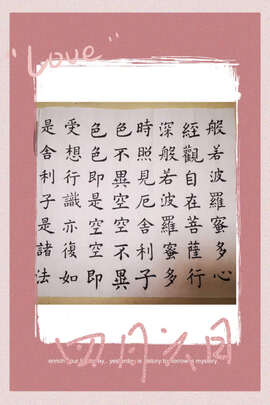 "Love"
般若波羅蜜多心
經觀自在菩薩行
深般若波羅蜜多
時照見厄舍利子
色不異空空不異
色色即是空空即
受想行識亦復如
是舍利子是諸法
四月六日
enrich your today,. yesterday is history.tomorrow is mystery